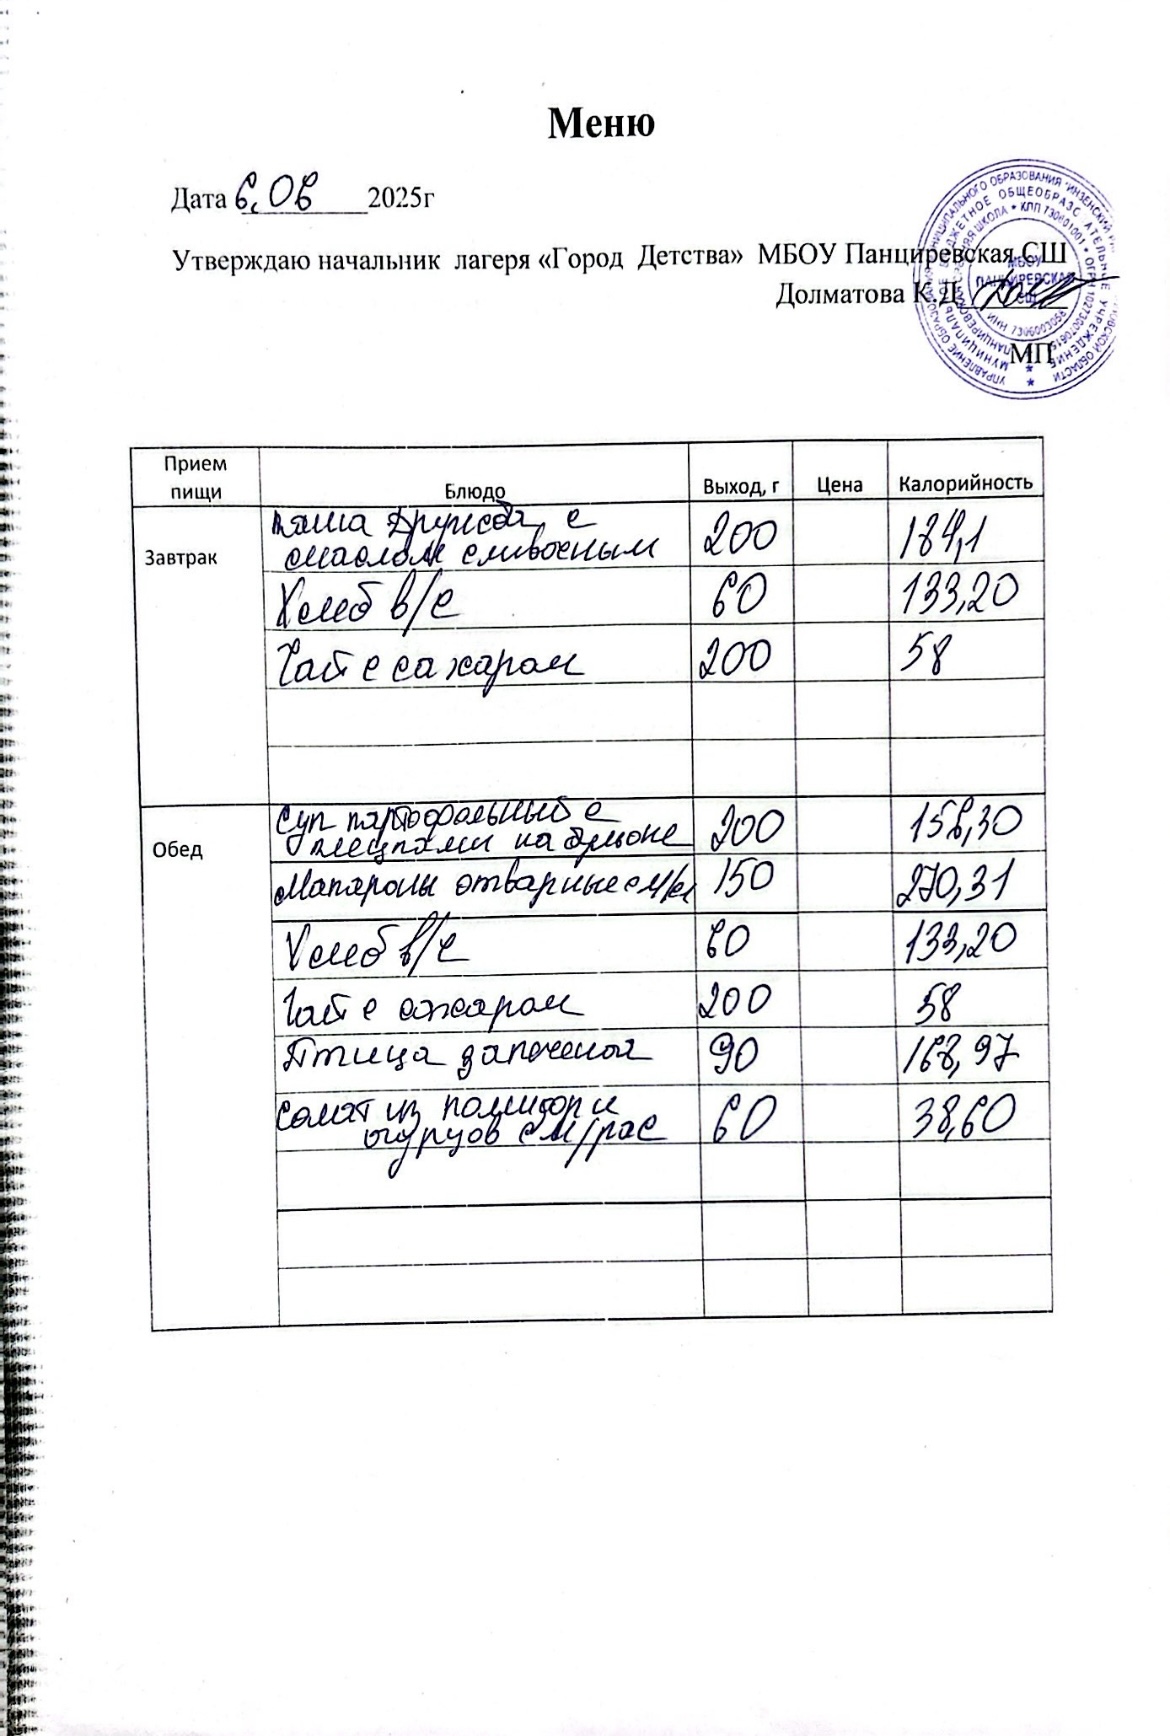 Меню
Дата 6.06 2025г
Утверждаю начальник лагеря «Город Детства» МБОУ Панциревская СШ
Долматова К.Д.
МП
МБОУ
ПАНЦИРЕВСКАЯ
СШ
ИНН 7306003058
Прием пищи Блюдо Выход, г Цена Калорийность
Завтрак
каша Дружба с
маслом сливочным 200 184,1
Хлеб в/с 60 133,20
Чай с сахаром 200 58
Обед
Суп картофельный с
клецками на бульоне 200 158,30
Макароны отварные с м/сл 150 270,31
Хлеб в/с 60 133,20
Чай с сахаром 200 58
Птица запеченая 90 168,97
Салат из помидор и
огурцов с м/рас 60 38,60